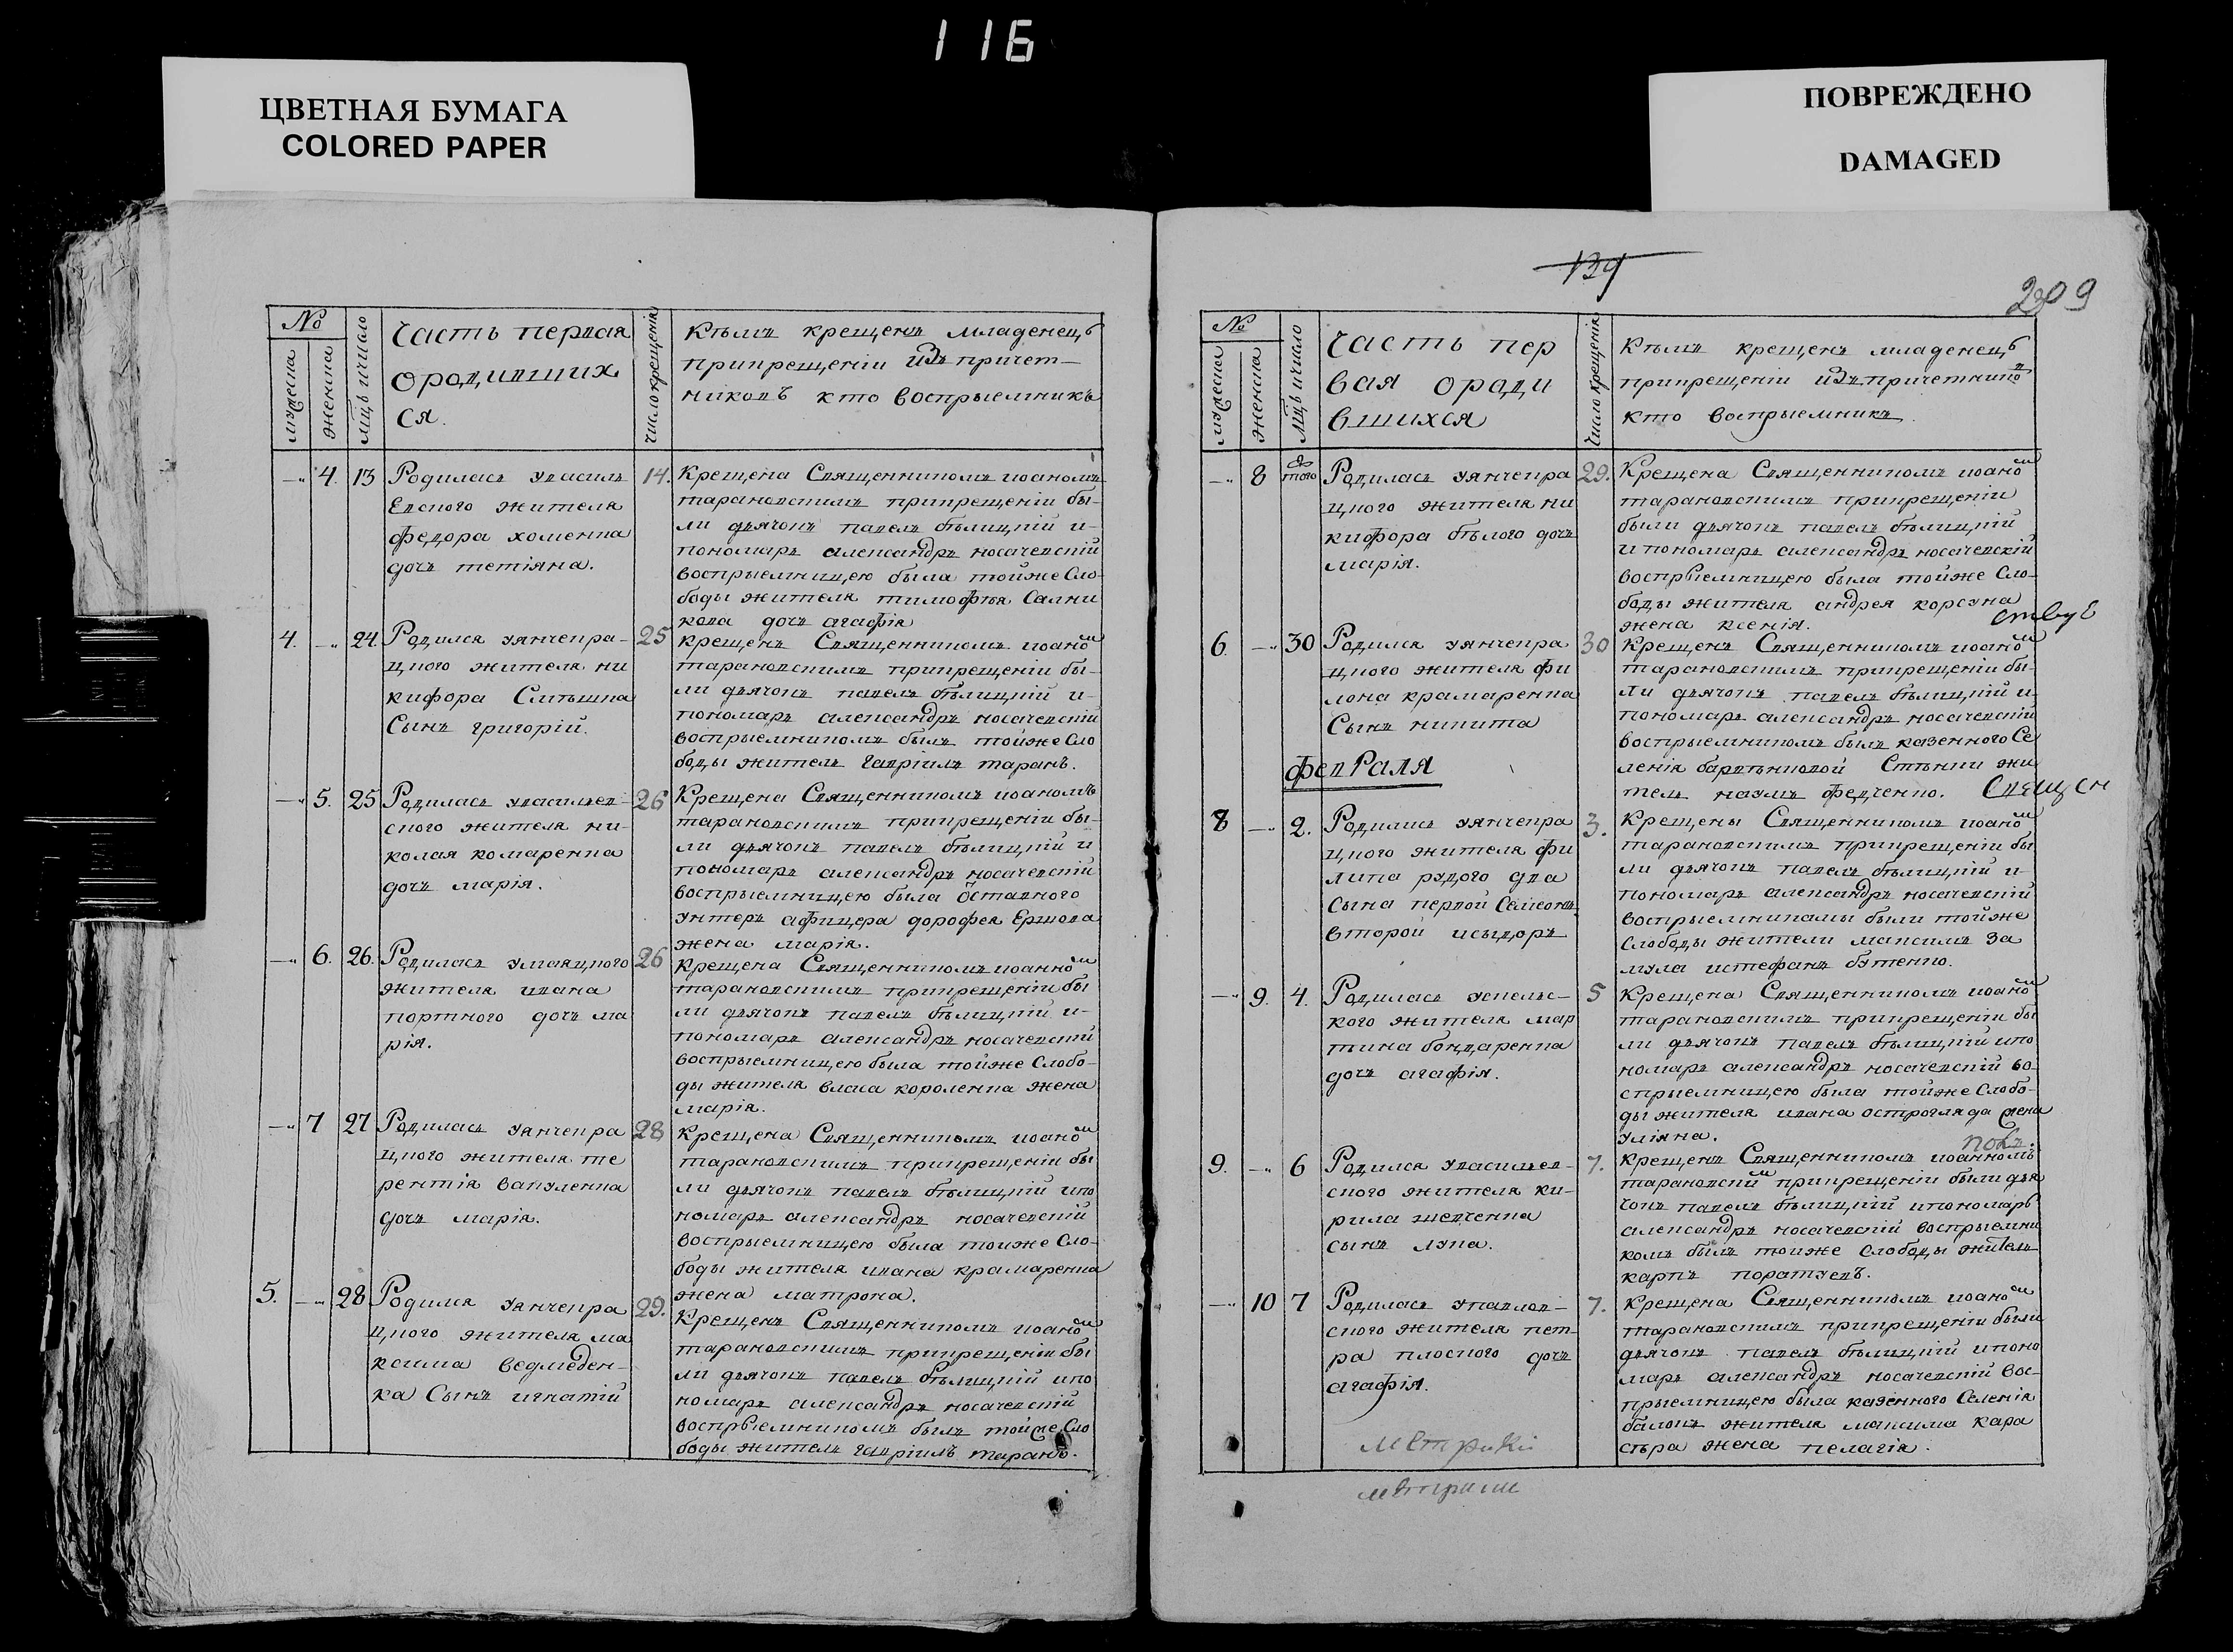 116
ЦВЕТНАЯ БУМАГА
COLORED PAPER
ПОВРЕЖДЕНО
DAMAGED
№
мужеска
женска
мцъ ичисло
Часть первая
ородивших
ся.
число крещенія
Кѣмъ крещенъ младенецъ
прикрещеніи изъ причет-
никовъ кто воспрыемникъ
4. 13 14.
Родиласъ увасилъ
Евского жителя
федора хоменка
дочъ тетіяна.
Крещена Священникомъ иоаномъ
тарановскимъ прикрещеніи бы-
ли дьячокъ павелъ бѣлицкій и-
пономаръ александръ носачевскій
воспрыемницею была тойже Сло-
боды жителя тимофѣя Сални
кова дочъ агафія
4. 24. 25
Родился уянчекра-
цкого жителя ни
кифора Слѣпшка
Сынъ григорій.
крещенъ Священникомъ иоаном
тарановскимъ прикрещеніи бы-
ли дьячокъ павелъ бѣлицкій и-
пономаръ александръ носачевскій
воспрыемникомъ былъ тойже Сло
боды жителъ гавріилъ таранъ.
5. 25 26
Родиласъ увасилъев-
ского жителя ни-
колая комаренка
дочъ марія.
Крещена Священникомъ иоаномъ
тарановскимъ прикрещеніи бы-
ли дьячокъ павелъ бѣлицкій и
пономаръ александръ носачевскій
воспрыемницею была Оставного
унтеръ афицера дорофея Ершова
жена марія.
6. 26. 26
Родиласъ умаяцкого
жителя ивана
портного дочъ ма
рія.
крещена Священникомъ иоанном
тарановскимъ прикрещеніи бы
ли дьячокъ павелъ бѣлицкій и-
пономаръ александръ носачевскій
воспрыемницею была тойже Слобо-
ды жителя власа короленка жена
марія.
7 27 28
Родиласъ уянчекра
цкого жителя те
рентія вакуленка
дочъ марія.
крещена Священникомъ иоаном
тарановскимъ прикрещеніи бы
ли дьячокъ павелъ бѣлицкій ипо
номаръ александръ носачевскій
воспрыемницею была тойже Сло-
боды жителя ивана крамаренка
жена матрона.
5. 28 29.
Родился уянчекра
цкого жителя ма
ксима ведмеден-
ка Сынъ игнатій
Крещенъ Священникомъ иоаном
тарановскимъ прикрещеніи бы
ли дьячокъ павелъ бѣлицкій ипо
номаръ александръ носачевскій
воспрыемникомъ былъ тойже Сло
боды жителъ гавріилъ таранъ.
209
№
мужеска
женска
мцъ ичисло
Часть пер
вая ороди
вшихся
Число крещенія
Кѣмъ крещенъ младенецъ
прикрещеніи изъпричетнико
кто воспрыемникъ
8 того 29.
Родиласъ уянчекра
цкого жителя ни
кифора бѣлого дочъ
марія.
Крещена Священникомъ иоаном
тарановскимъ прикрещеніи
были дьячокъ павелъ бѣлицкій
и пономаръ александръ носачевскій
воспрыемницею была тойже Сло-
боды жителя андрея корсуна
жена ксенія.
6. 30 30
Родился уянчекра
цкого жителя фи
лона крамаренка
Сынъ никита
Крещенъ Священникомъ иоаном
тарановскимъ прикрещеніи бы-
ли дьячокъ павелъ бѣлицкій и-
пономаръ александръ носачевскій
воспрыемникомъ былъ казенного Се
ленія барвѣнковой Стѣнки жи
телъ наумъ федченко.
февраля
8 2. 3.
Родились уянчекра
цкого жителя фи
липа рудого два
сына первой Самсонъ
второй исыдоръ
Крещены Священникомъ иоаном
тарановскимъ прикрещеніи бы
ли дьячокъ павелъ бѣлицкій и-
пономаръ александръ носачевскій
воспрыемниками были тойже
слободы жители максимъ за
мула истефанъ бутенко.
9. 4. 5
Родиласъ успевс-
кого жителя мар
тына бондаренка
дочъ агафія.
Крещена Священникомъ иоаном
тарановскимъ прикрещеніи бы
ли дьячокъ павелъ бѣлицкій ипо
номаръ александръ носачевскій во-
спрыемницею была тойже Слобо-
ды жителя ивана остролгляда жена
уліяна.
9. 6 7.
Родился увасилъев-
ского жителя ки-
рила шевченка
сынъ лука.
крещенъ Священникомъ иоанномъ
тарановским прикрещеніи были дья
чокъ павелъ бѣлицкій ипономаръ
александръ носачевскій воспрыемни
комъ былъ тойже слободы жителъ
карпъ поратуевъ.
10 7 7.
Родиласъ упавлов-
ского жителя пет-
ра плоского дочъ
агафія.
Крещена Священникомъ иоаном
тарановскимъ прикрещеніи были
дьячокъ павелъ бѣлицкій ипоно
маръ александръ носачевскій вос-
прыемницею была казенного Селенія
жителя максима кара
жена пелагія.
метрики